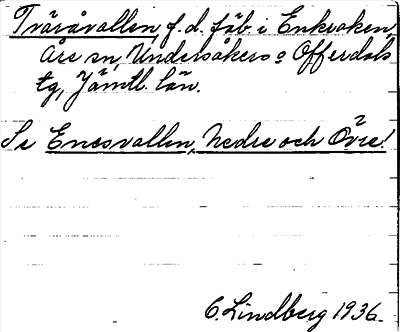 Tväråvallen, f.d. fäb. i Enkroken,
Åre sn, Undersåkers o Offerdals
tg, Jämtl. län.
Se Enosvallen, Nedre och Övre!
C. Lindberg 1936.